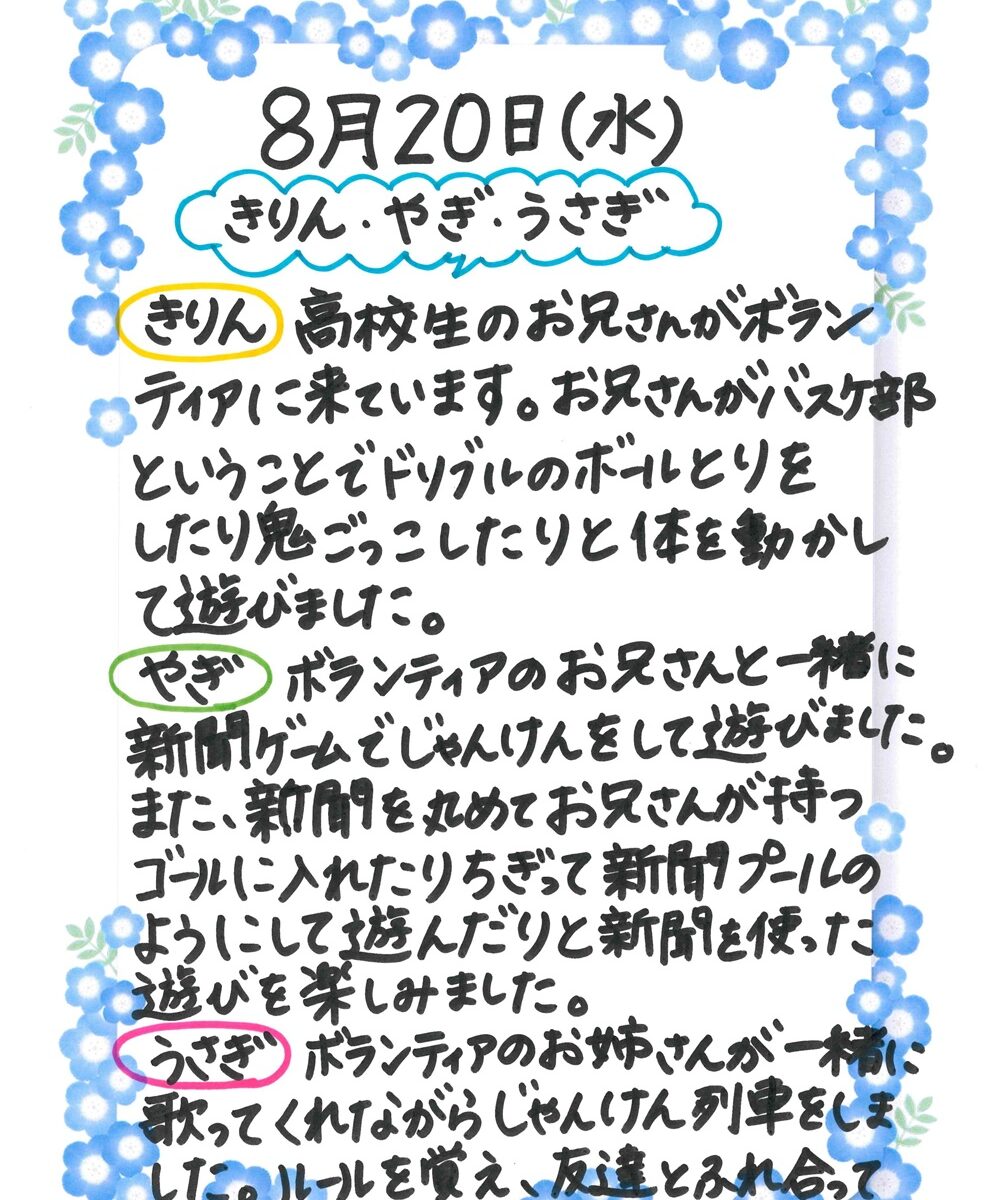 8月20日(水)
きりん・やぎ・うさぎ
きりん 高校生のお兄さんがボラン
ティアに来ています。お兄さんがバスケ部
ということでドリブルのボールとりを
したり鬼ごっこしたりと体を動かし
て遊びました。
やぎ ボランティアのお兄さんと一緒に
新聞ゲームでじゃんけんをして遊びました。
また、新聞を丸めてお兄さんが持つ
ゴールに入れたりちぎって新聞プールの
ようにして遊んだりと新聞を使った
遊びを楽しみました。
うさぎ ボランティアのお姉さんが一緒に
歌ってくれながらじゃんけん列車をしま
した。ルールを覚え、友達とふれ合って